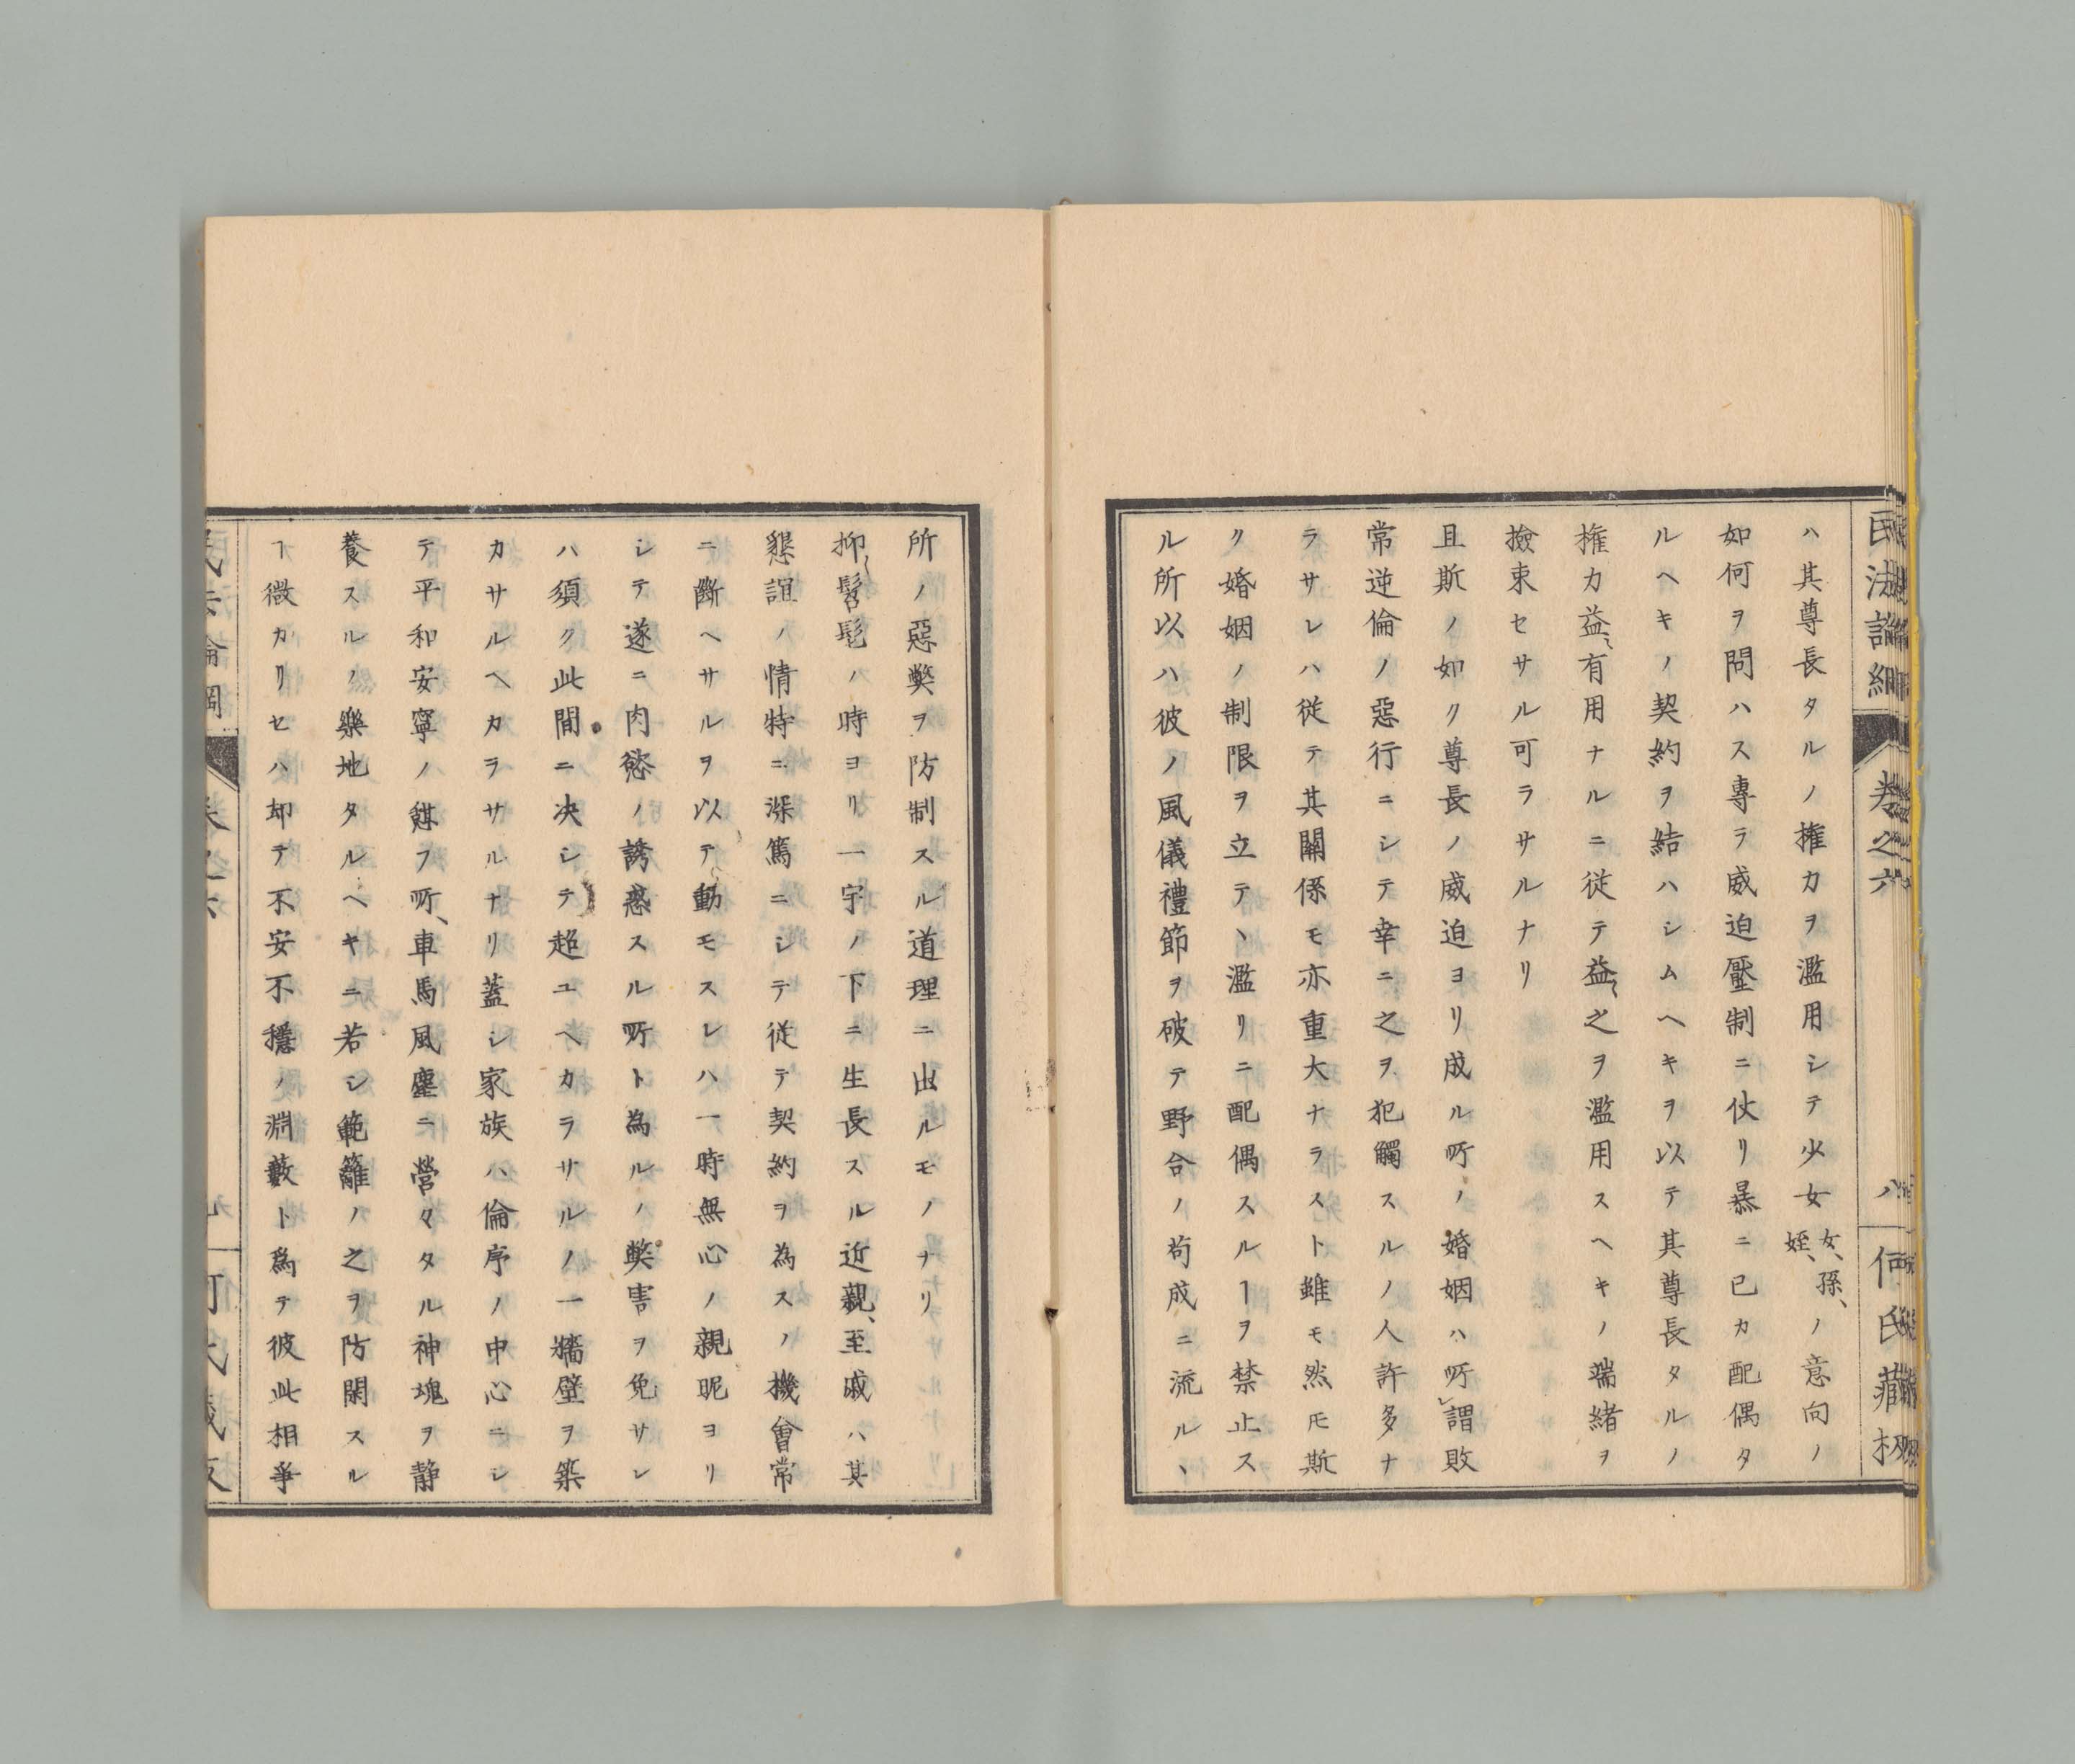 民法論綱 卷之六 八 何氏藏板
ハ其尊長タルノ権力ヲ濫用シテ少女女、孫、姪、ノ意向ノ
如何ヲ問ハス專ラ威迫壓制ニ仗リ暴ニ已カ配偶タ
ルヘキノ契約ヲ結ハシムヘキヲ以テ其尊長タルノ
権力益〻有用ナルニ従テ益〻之ヲ濫用スヘキノ端緒ヲ
撿束セサル可ラサルナリ
且斯ノ如ク尊長ノ威迫ヨリ成ル所ノ婚姻ハ所謂敗
常逆倫ノ惡行ニシテ幸ニ之ヲ犯觸スルノ人許多ナ
ラサレハ従テ其關係モ亦重大ナラスト雖モ然モ斯
ク婚姻ノ制限ヲ立テヽ濫リニ配偶スルヿヲ禁止ス
ル所以ハ彼ノ風儀禮節ヲ破テ野合ノ苟成ニ流ルヽ
所ノ惡弊ヲ防制スル道理ニ出ルモノナリ
抑〻髫髦ノ時ヨリ一宇ノ下ニ生長スル近親、至戚ハ其
懇誼ノ情特ニ深篤ニシテ従テ契約ヲ為スノ機會常
ニ斷ヘサルヲ以テ動モスレハ一時無心ノ親昵ヨリ
シテ遂ニ肉慾ノ誘惑スル所ト為ルノ弊害ヲ免サレ
ハ須ク此間ニ决シテ超ユヘカラサルノ一墻壁ヲ築
カサルヘカラサルナリ蓋シ家族ハ倫序ノ中心ニシ
テ平和安寧ノ憇フ所、車馬風塵ニ營々タル神魂ヲ静
養スルノ樂地タルヘキニ若シ範籬ノ之ヲ防閑スル
ヿ微カリセハ却テ不安不穩ノ淵藪ト爲テ彼此相爭